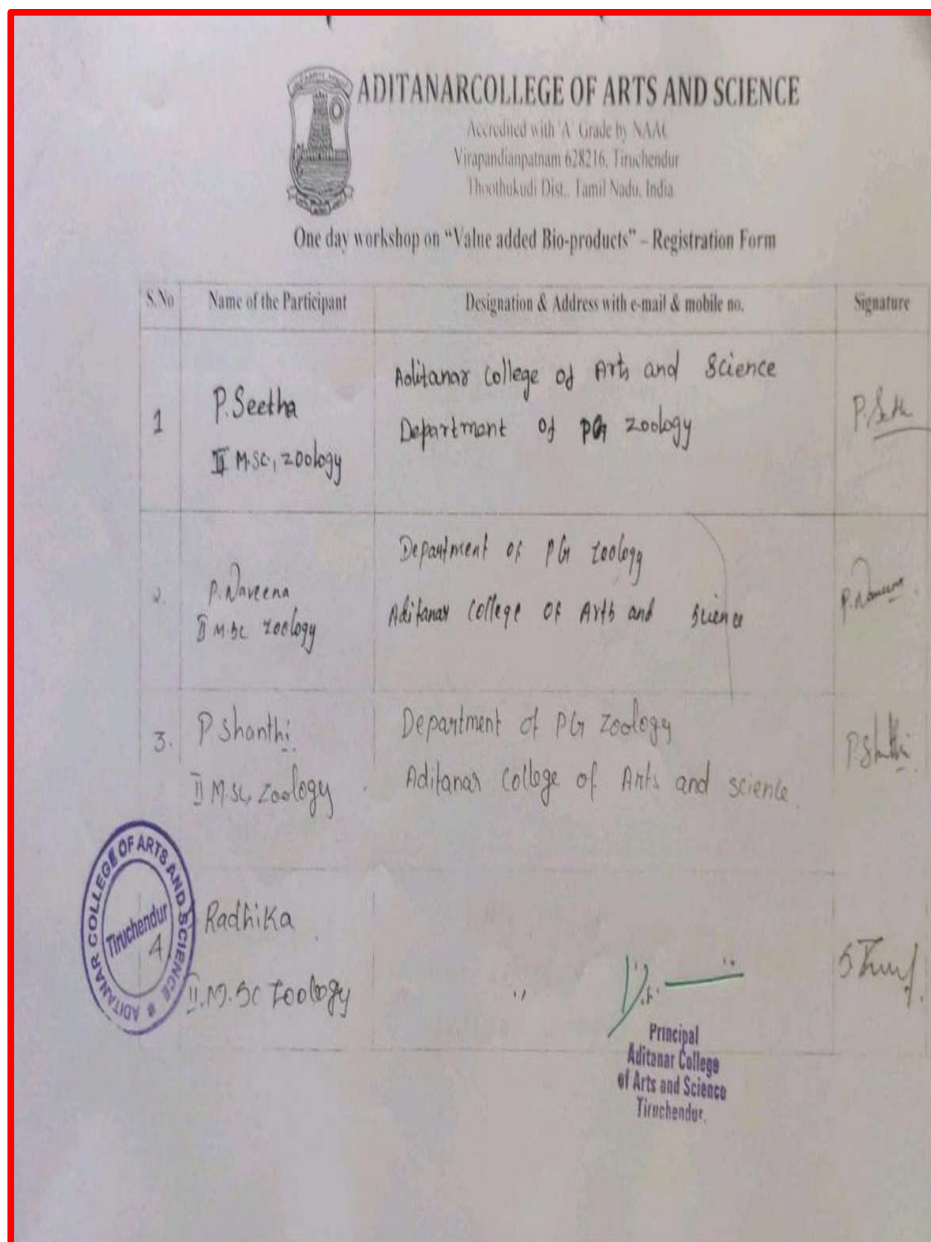 ADITANARCOLLEGE OF ARTS AND SCIENCE
Accredited with 'A' Grade by NAAC
Virapandianpatnam 628216, Tiruchendur
Thoothukudi Dist., Tamil Nadu, India
One day workshop on “Value added Bio-products” – Registration Form
S.No Name of the Participant Designation & Address with e-mail & mobile no. Signature
1 P.Seetha Aditanar College of Arts and Science
II M.Sc, Zoology Department of PG Zoology
P.Seth
2. P.Naveena Department of PG Zoology
II M.Sc Zoology Aditanar College of Arts and Science
P.Naveena
3. P Shanthi Department of PG Zoology
II M.Sc, Zoology. Aditanar College of Arts and science.
P.Shanthi
4 Radhika
II. M.Sc Zoology "
ADITANAR COLLEGE OF ARTS AND SCIENCE
Tiruchendur
Principal
Aditanar College
of Arts and Science
Tiruchendur.